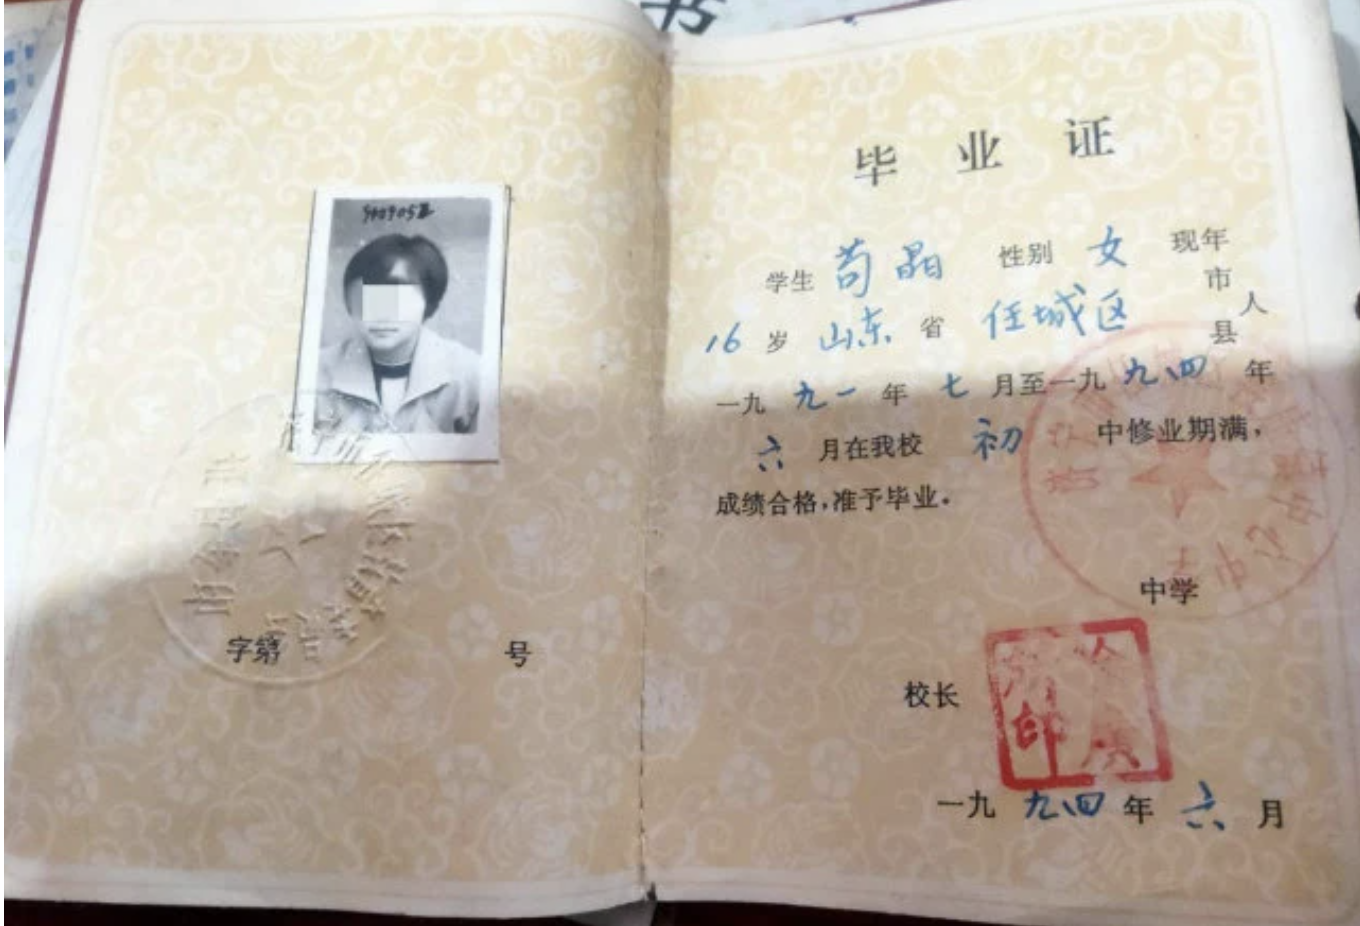 书
9409052
字第 号
毕业证
学生 苟晶 性别 女 现年
16 岁 山东 省 任城区 市县人
一九 九一 年 七 月至一九 九四 年
六 月在我校 初 中修业期满，
成绩合格，准予毕业。
中学
校长
一九 九四 年 六 月